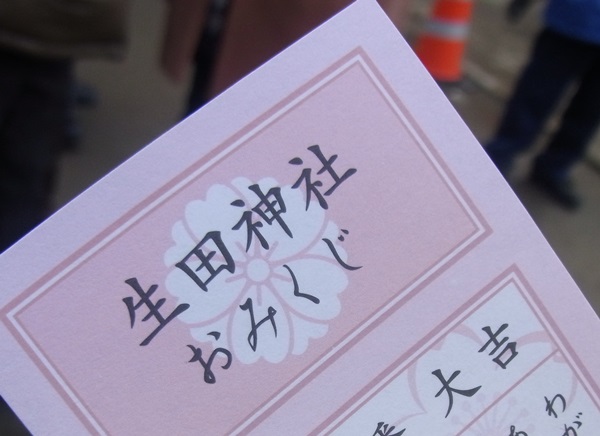 生田神社
おみくじ
大吉
わが